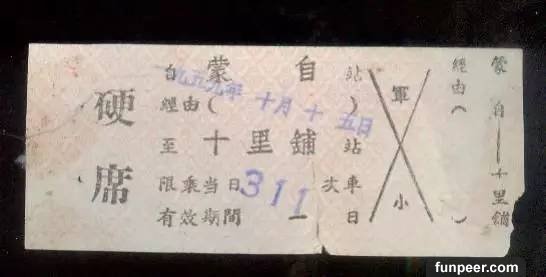 硬席
自 蒙自 站
一九五九年十月十五日
經由( )
至 十里鋪 站
限乘當日 311 次車
有效期間 一 日
軍
小
經由( )
蒙自——十里鋪
funpeer.com